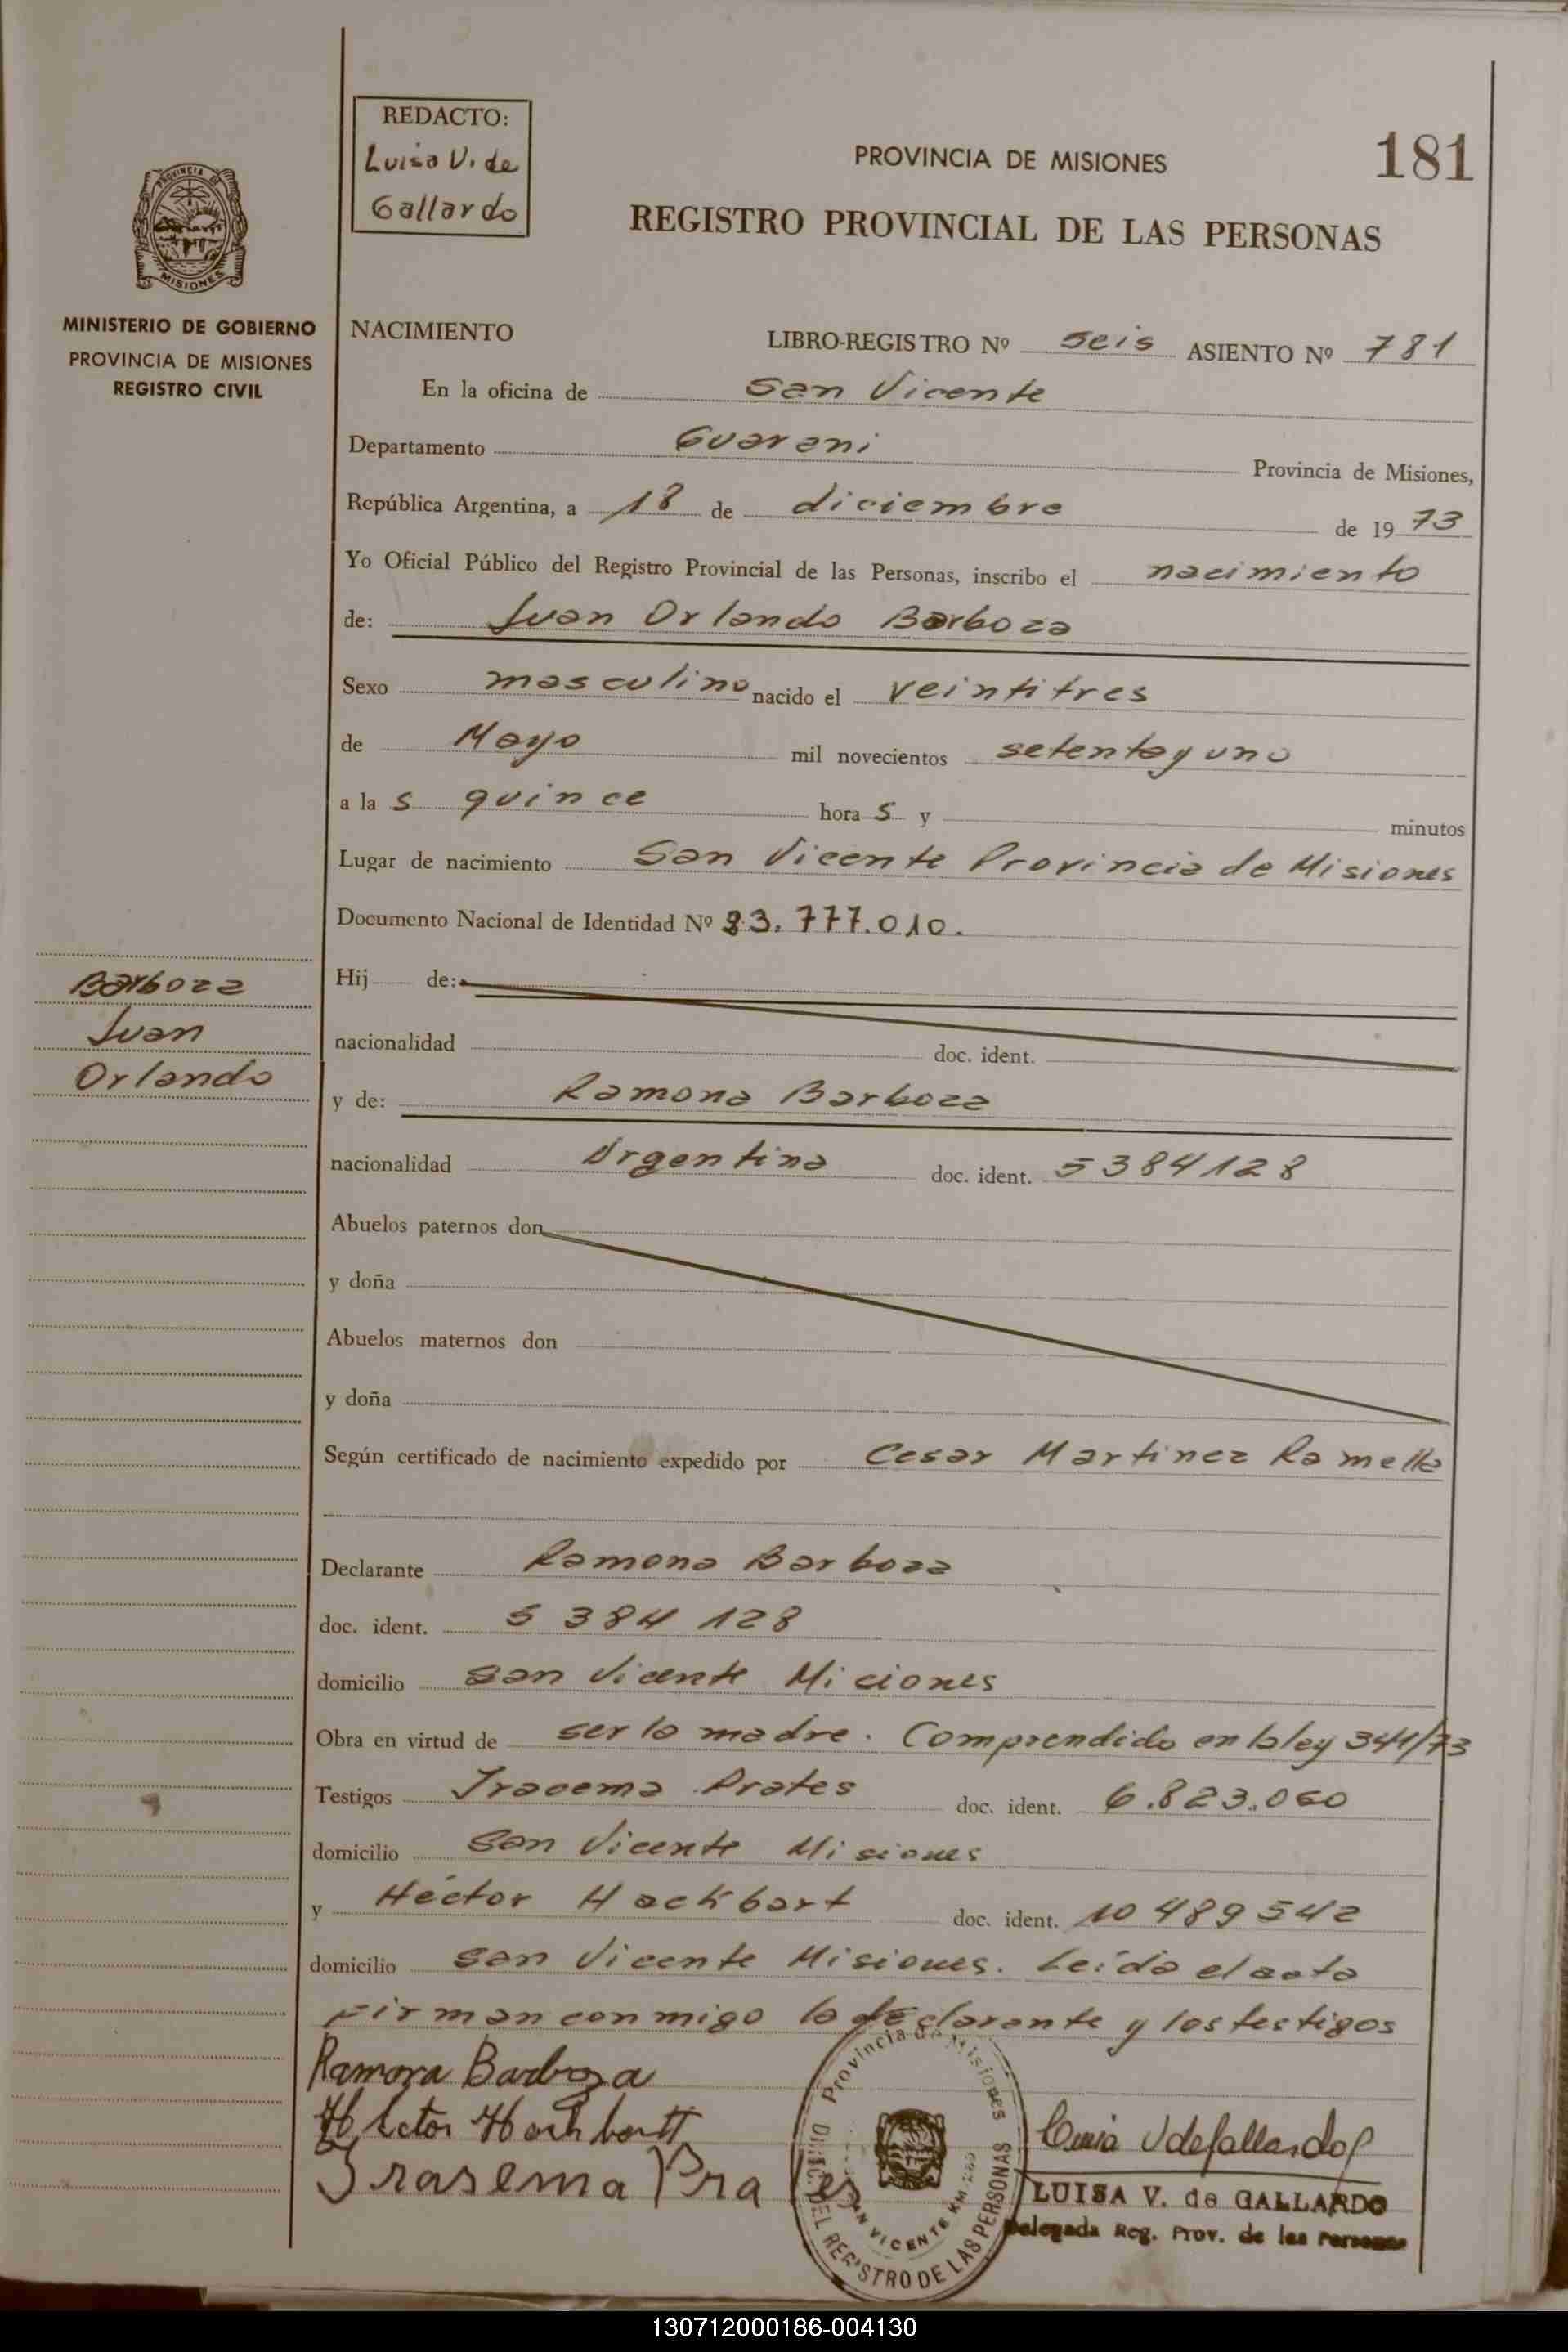 REDACTO:
Luisa V. de
Gallardo
PROVINCIA DE MISIONES
181
REGISTRO PROVINCIAL DE LAS PERSONAS
MINISTERIO DE GOBIERNO
PROVINCIA DE MISIONES
REGISTRO CIVIL
NACIMIENTO LIBRO-REGISTRO Nº seis ASIENTO Nº 781
En la oficina de San Vicente
Departamento Guarani Provincia de Misiones,
República Argentina, a 18 de diciembre de 1973
Yo Oficial Público del Registro Provincial de las Personas, inscribo el nacimiento
de: Juan Orlando Barboza
Sexo masculino nacido el veintitres
de Mayo mil novecientos setenta y uno
a la s quince hora s y minutos
Lugar de nacimiento San Vicente Provincia de Misiones
Documento Nacional de Identidad Nº 23.777.010.
Barboza
Juan
Orlando
Hij de:
nacionalidad doc. ident.
y de: Ramona Barboza
nacionalidad Argentina doc. ident. 5384128
Abuelos paternos don
y doña
Abuelos maternos don
y doña
Según certificado de nacimiento expedido por Cesar Martinez Ramella
Declarante Ramona Barboza
doc. ident. 5 384 128
domicilio San Vicente Miciones
Obra en virtud de ser la madre. Comprendido en la ley 344/73
Testigos Iracema Prates doc. ident. 6.823.060
domicilio San Vicente Misiones
y Héctor Hackbart doc. ident. 10 489 542
domicilio San Vicente Misiones. Leída el acta
firman conmigo la declarante y los testigos
Ramona Barboza
Hector Hachbartt
Irasema Prates
Provincia de Misiones
DIREC. DEL REGISTRO DE LAS PERSONAS
SAN VICENTE KM.
LUISA V. de GALLARDO
Delegada Reg. Prov. de las Personas
130712000186-004130